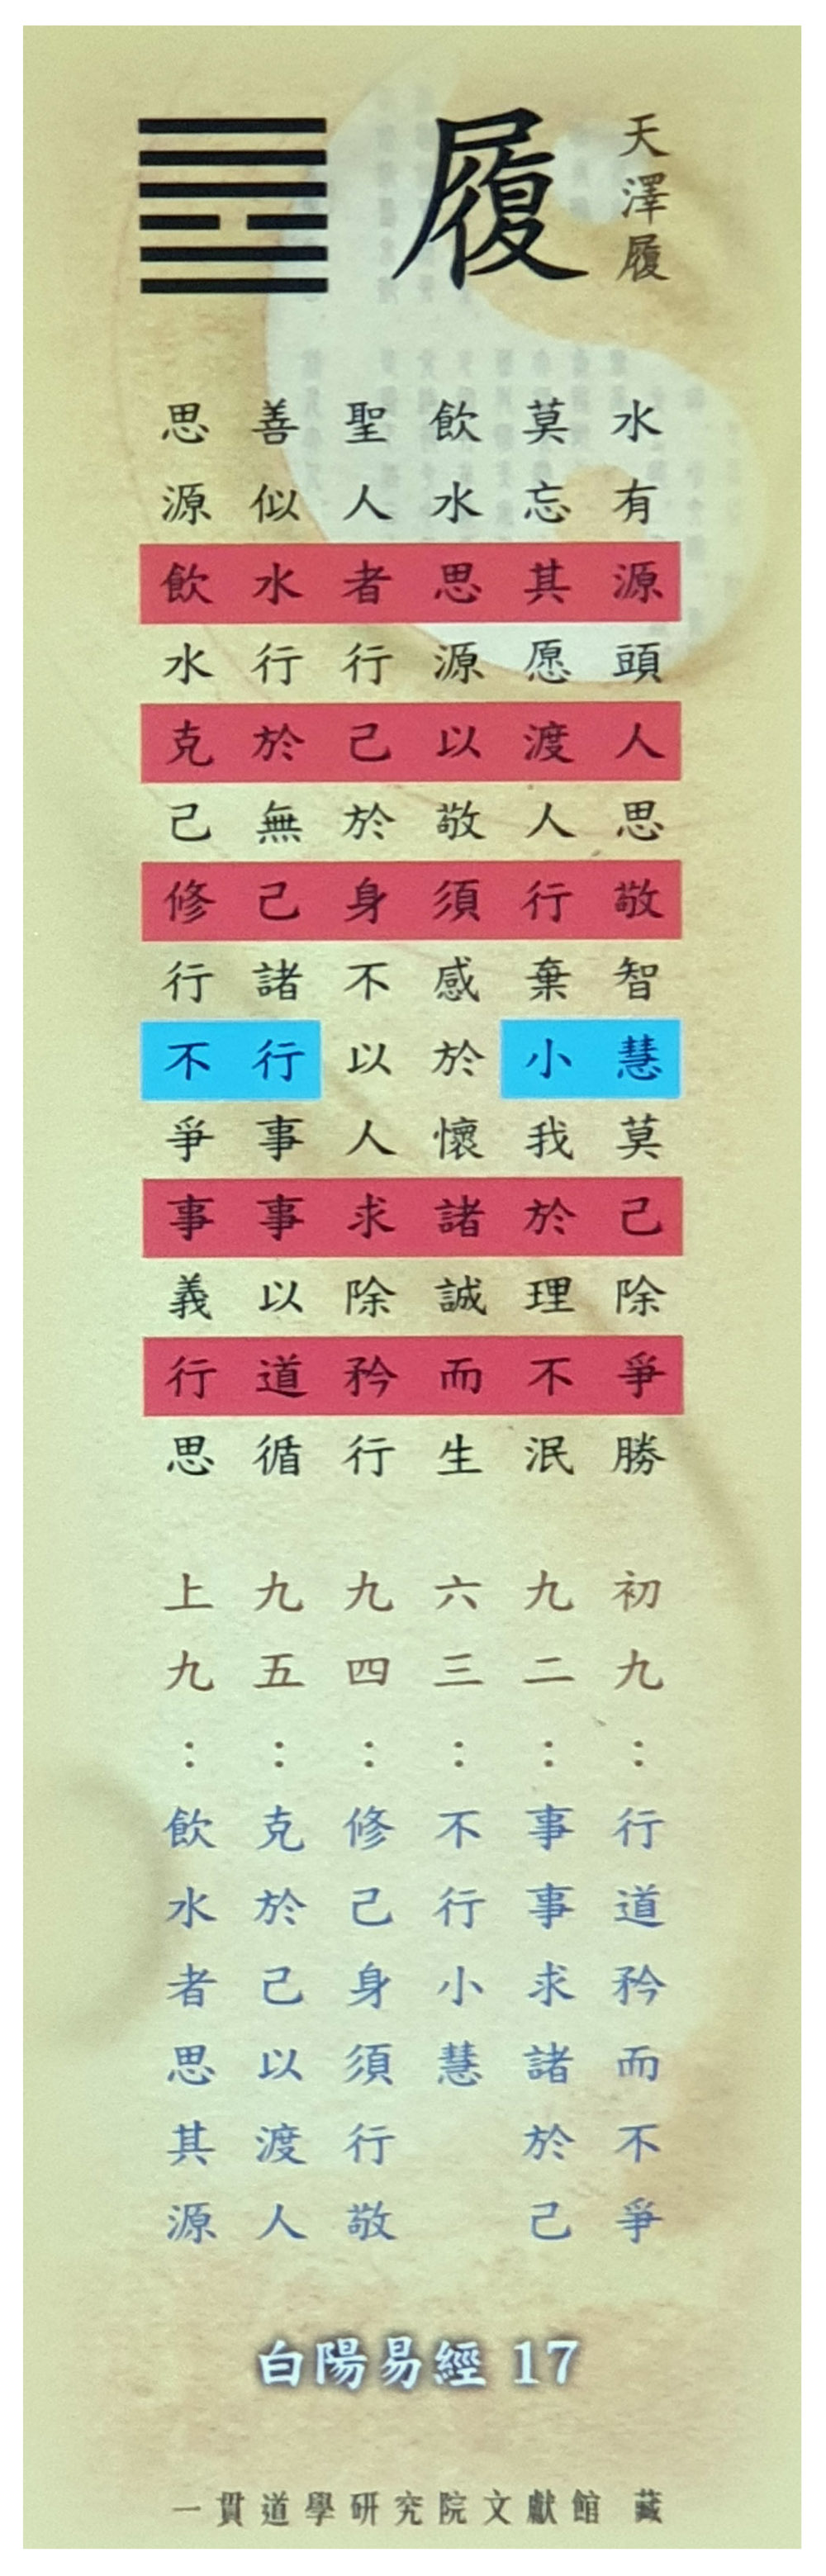 天澤履
履
水有源頭人思敬智慧莫己除爭勝
莫忘其愿渡人行棄小我於理不泯
飲水思源以敬須感於懷諸誠而生
聖人者行己於身不以人求除矜行
善似水行於無己諸行事事以道循
思源飲水克己修行不爭事義行思
初九：行道矜而不爭
九二：事事求諸於己
六三：不行小慧
九四：修己身須行敬
九五：克於己以渡人
上九：飲水者思其源
白陽易經 17
一貫道學研究院文獻館 藏